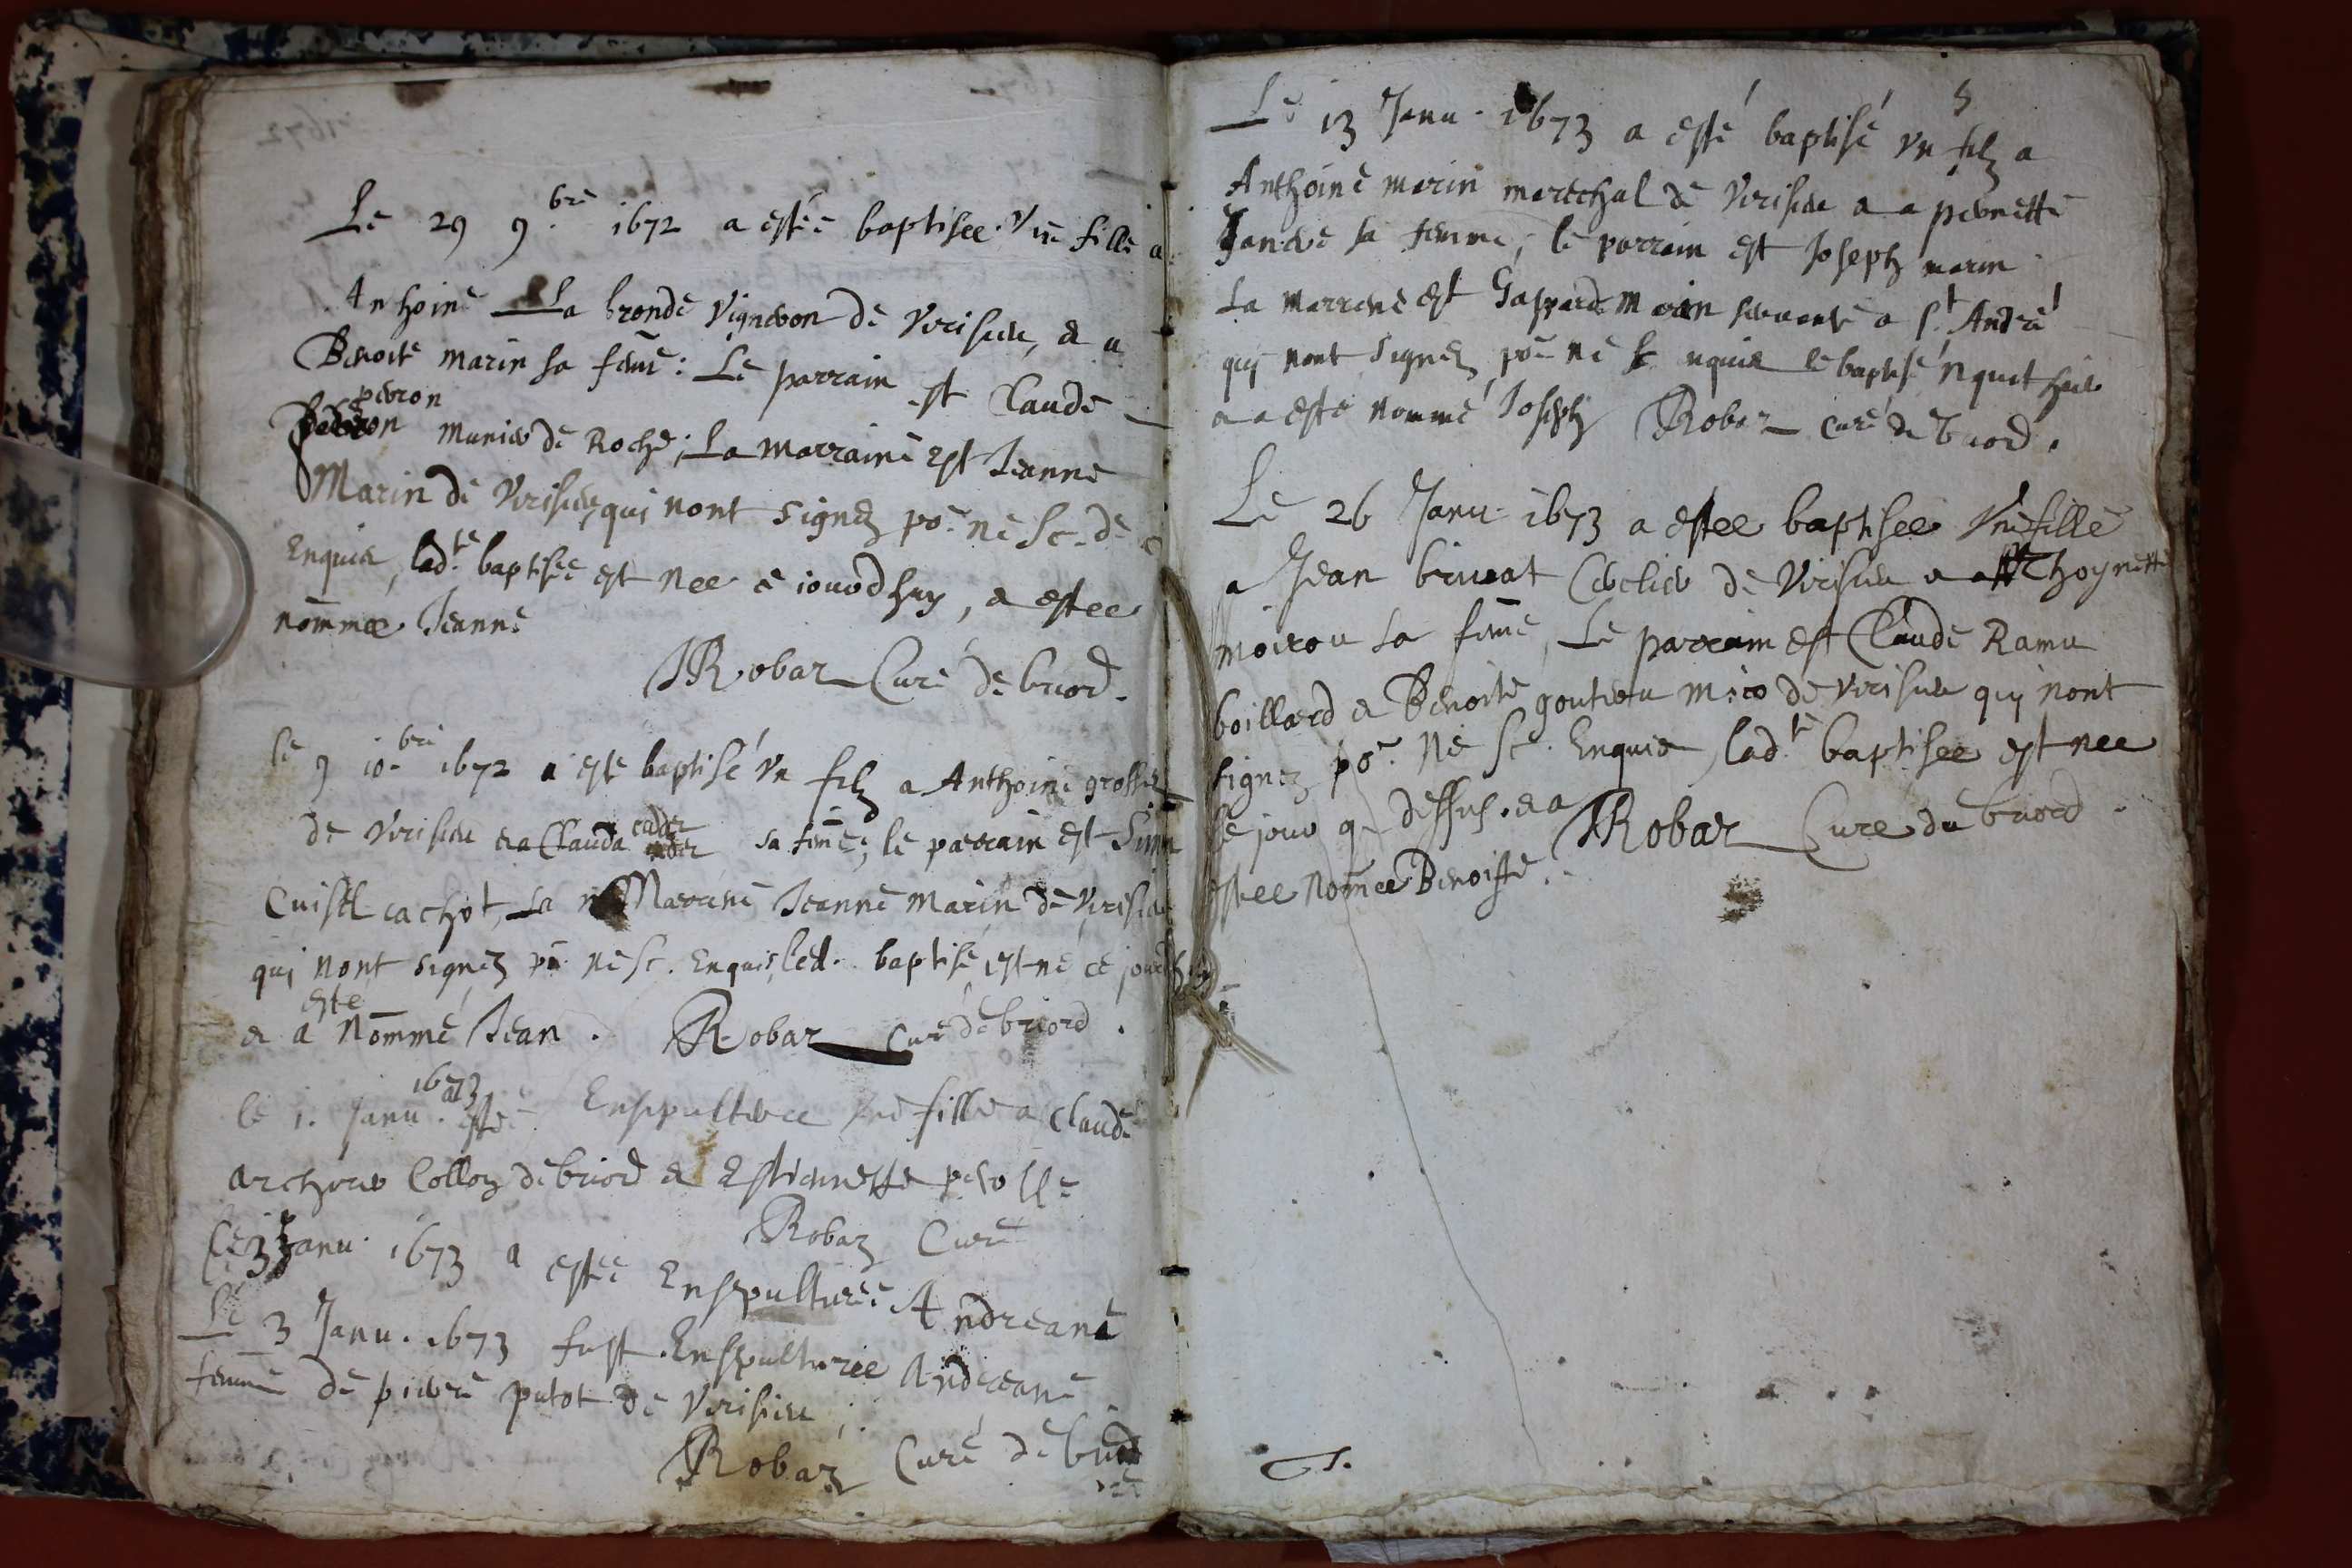 Le 29 9.bre 1672 a estée baptisee Vne fille a
Anthoine La bronde Vigneron de Verisieu, & a
Benoite Marin sa feme: Le parrain est Claude
peron
munier de Roche; La marraine est Jeanne
Marin de Verisieu, qui nont signez po.r ne Sc. de
Enquis, lad.te baptisée est nee ce iourdhuy, a estee
nommee Jeanne
Robaz Curé de briord.
le 9 10.bre 1672 a esté baptisé vn filz a Anthoine
de Verisieu & a Clauda cader sa feme; le parrain est
cachot, La Marraine Jeanne Marin de Verisieu
qui nont signez po.r ne sc. Enquis, led. baptisé est né ce
este
& a nommé Jean. Robaz Curé de briord.
1673
le 1. Janu. a esté Ensepulturee vne fille a Claude
de briord & Estiennette
Robaz Curé
Le 3 Janu. 1673 a estée Ensepulturée Andreane
Le 3 Janu. 1673 fust Ensepulturee Andreane
femme de pierre putot de Verisieu;
Robaz Curé de briord
5
Le 13 Janu. 1673 a esté baptisé vn filz a
Anthoine marin marechal de Verisieu & a pernette
sa femme, le parrain est Joseph marin
La marrene est Gasparde Marin servante a St. André
qui nont signez po.r ne Sc. Enquis le baptisé nquit hier
& a esté nommé Joseph Robaz curé de briord.
Le 26 Janu. 1673 a estee baptisee Vne fille
a Jean bruat de Verisieu & a Anthoynette
moirou sa feme, Le parrain est Claude Ramu
boillard & Benoite de Verisieu qui nont
signez po.r Ne Sc. Enquis, lad.te baptisee est nee
le jour q dessus. & a Robaz Curé de briord.
estee nomee Benoiste.